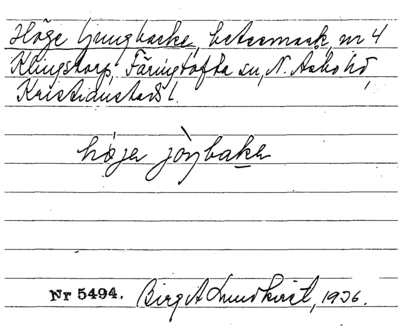 Höge Ljungbacke, betesmark, nr 4
Klingstorp, Färingtofta sn, N. Åsbo hd,
Kristianstads l.
højer jȯŋbakə
Nr 5494. Birgit Lundkvist, 1936.